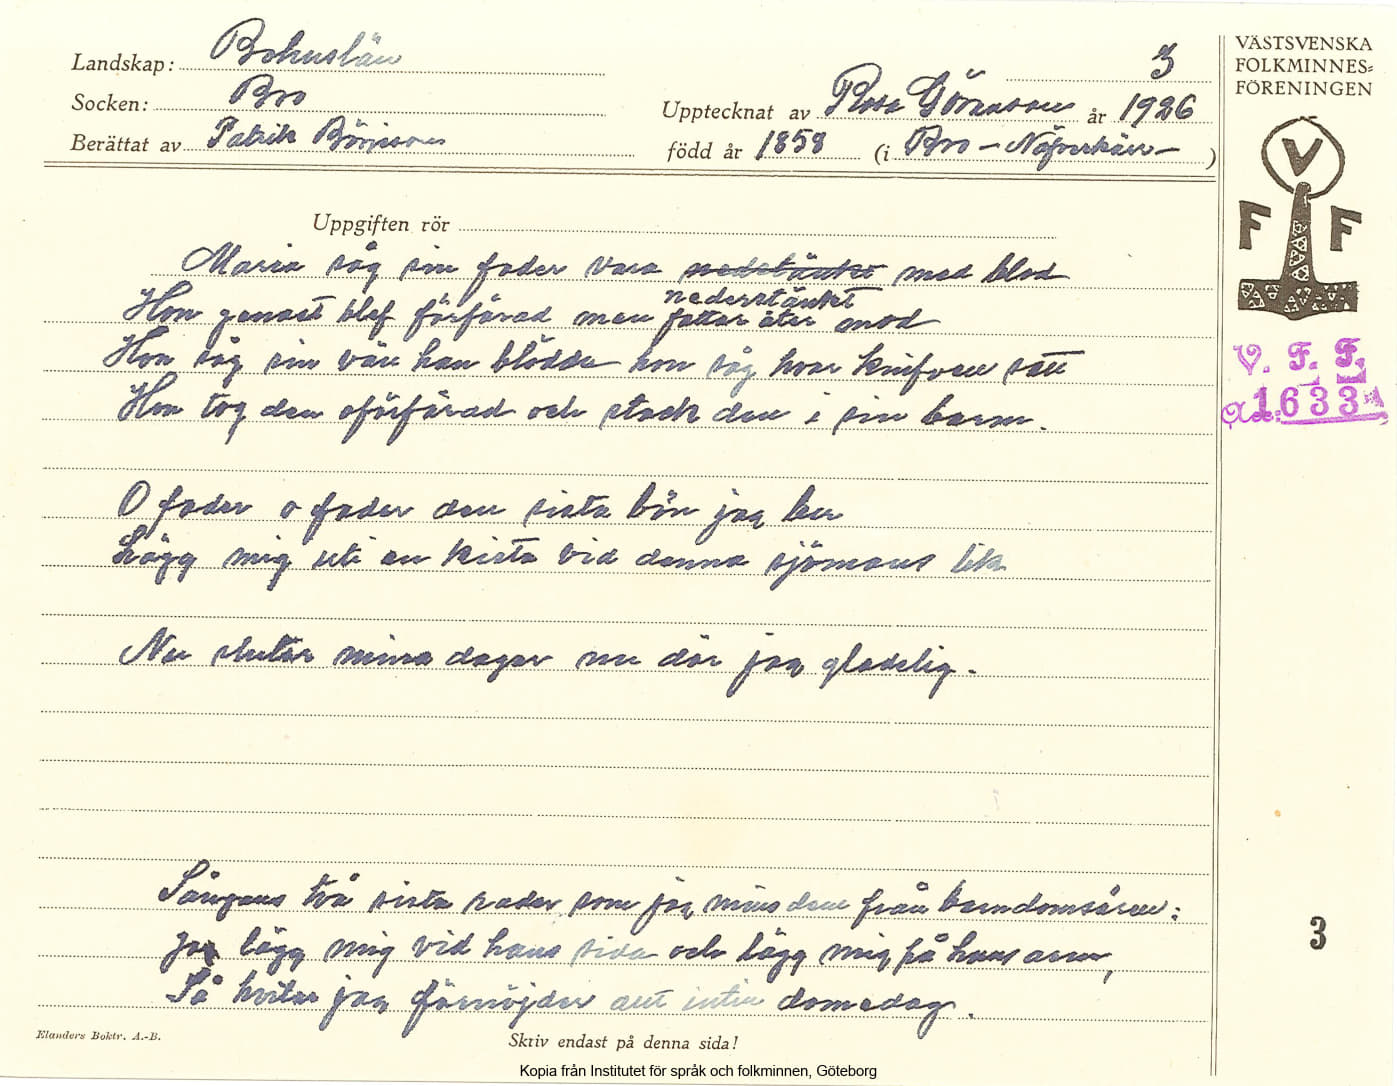 Landskap: Bohuslän
Socken: Bro
Berättat av Patrik Börjesson
3
Upptecknat av Rosa Göransson år 1926
född år 1858 (i Bro – Näfverkärr – )
VÄSTSVENSKA
FOLKMINNES=
FÖRENINGEN
V
F F
V. F. F.
1633
Uppgiften rör
Maria såg sin fader vara nedstänkt med blod
nederstänket
Hon genast blef förfärad men fattar åter mod
Hon såg sin vän han blödde hon såg hvar knifven satt
Hon tog den oförfärad och stack den i sin barm.
O fader o fader den sista bön jag ber
Lägg mig uti en kista vid denna sjömans lik
Nu slutar mina dagar nu dör jag gladelig.
Sångens två sista rader som jag minns dem från barndomsåren:
Ja lägg mig vid hans sida och lägg mig på hans arm,
Så hvilar jag förnöjder allt intill domedag.
3
Elanders Boktr. A.-B.
Skriv endast på denna sida!
Kopia från Institutet för språk och folkminnen, Göteborg